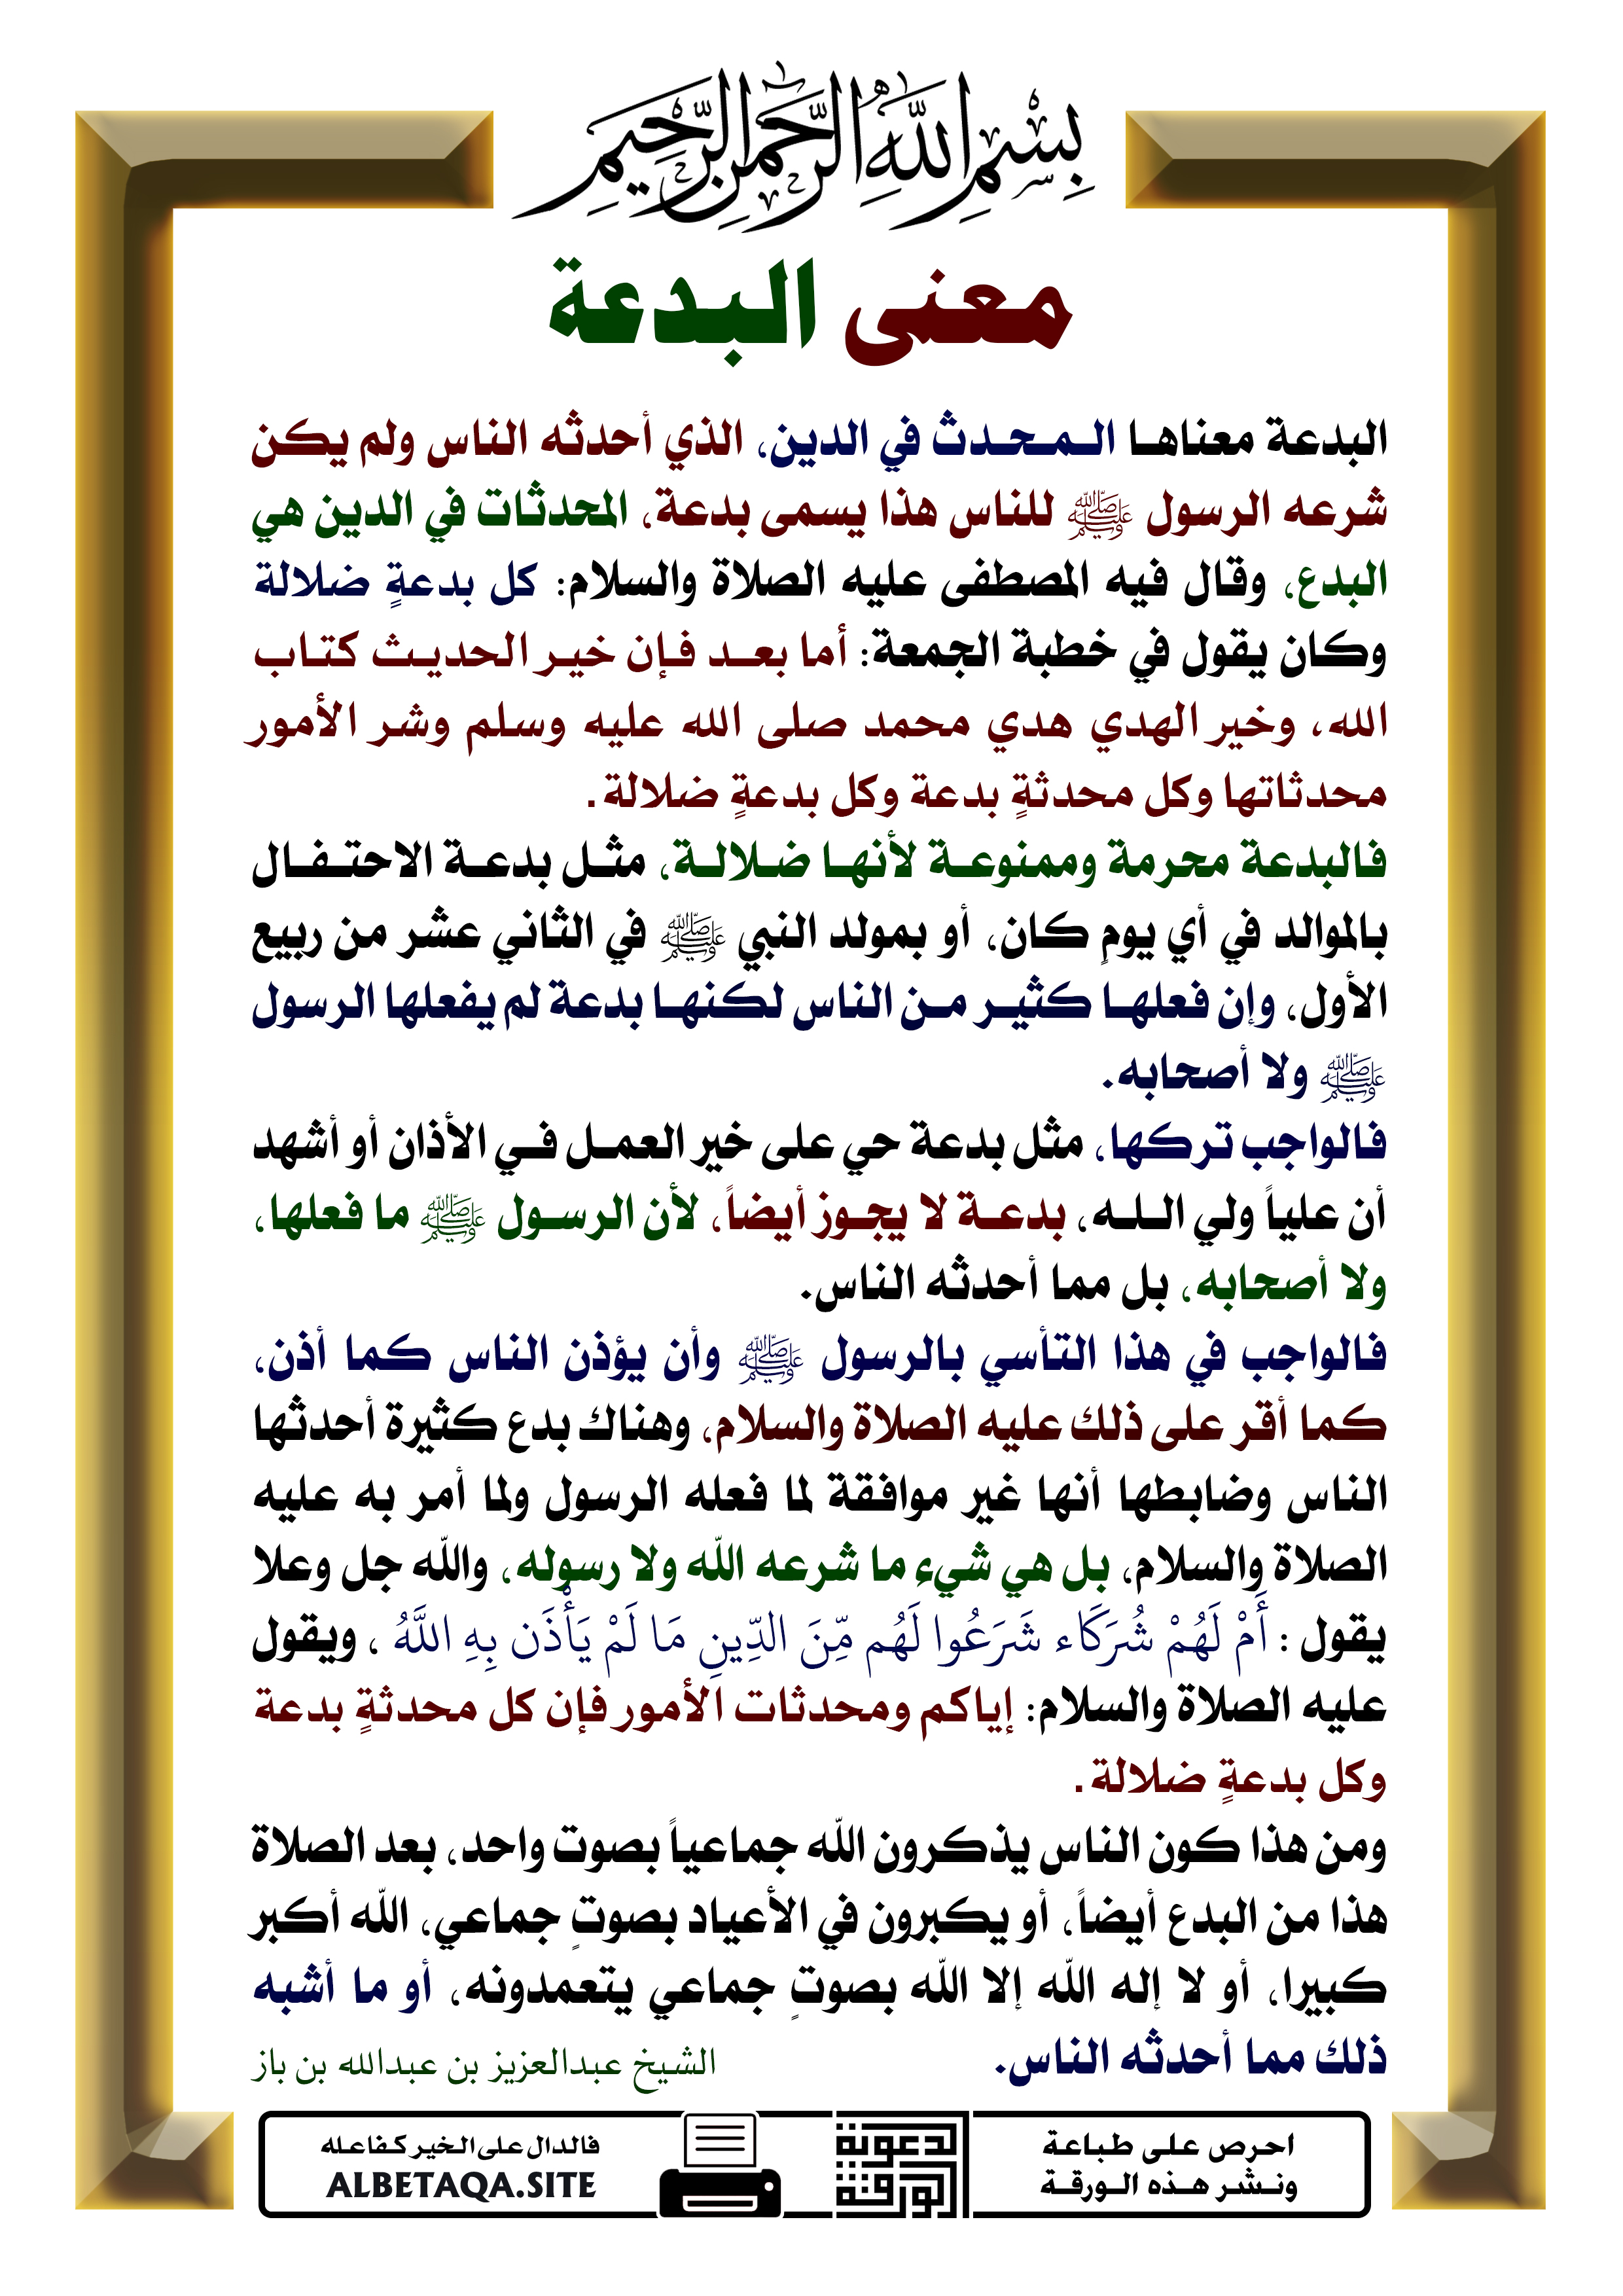 بِسْمِ اللَّهِ الرَّحْمَنِ الرَّحِيمِ
معنى البدعة
البدعة معناها المحدث في الدين، الذي أحدثه الناس ولم يكن
شرعه الرسول ﷺ للناس هذا يسمى بدعة، المحدثات في الدين هي
البدع، وقال فيه المصطفى عليه الصلاة والسلام: كل بدعةٍ ضلالة
وكان يقول في خطبة الجمعة: أما بعد فإن خير الحديث كتاب
الله، وخير الهدي هدي محمد صلى الله عليه وسلم وشر الأمور
محدثاتها وكل محدثةٍ بدعة وكل بدعةٍ ضلالة.
فالبدعة محرمة وممنوعة لأنها ضلالة، مثل بدعة الاحتفال
بالموالد في أي يومٍ كان، أو بمولد النبي ﷺ في الثاني عشر من ربيع
الأول، وإن فعلها كثير من الناس لكنها بدعة لم يفعلها الرسول
ﷺ ولا أصحابه.
فالواجب تركها، مثل بدعة حي على خير العمل في الأذان أو أشهد
أن علياً ولي الله، بدعة لا يجوز أيضاً، لأن الرسول ﷺ ما فعلها،
ولا أصحابه، بل مما أحدثه الناس.
فالواجب في هذا التأسي بالرسول ﷺ وأن يؤذن الناس كما أذن،
كما أقر على ذلك عليه الصلاة والسلام، وهناك بدع كثيرة أحدثها
الناس وضابطها أنها غير موافقة لما فعله الرسول ولما أمر به عليه
الصلاة والسلام، بل هي شيء ما شرعه الله ولا رسوله، والله جل وعلا
يقول : أَمْ لَهُمْ شُرَكَاء شَرَعُوا لَهُم مِّنَ الدِّينِ مَا لَمْ يَأْذَن بِهِ اللَّهُ ، ويقول
عليه الصلاة والسلام: إياكم ومحدثات الأمور فإن كل محدثةٍ بدعة
وكل بدعةٍ ضلالة.
ومن هذا كون الناس يذكرون الله جماعياً بصوت واحد، بعد الصلاة
هذا من البدع أيضاً، أو يكبرون في الأعياد بصوتٍ جماعي، الله أكبر
كبيرا، أو لا إله الله إلا الله بصوتٍ جماعي يتعمدونه، أو ما أشبه
ذلك مما أحدثه الناس.
الشيخ عبدالعزيز بن عبدالله بن باز
احرص على طباعة
ونشر هذه الورقة
الورقة
الدعوية
فالدال على الخير كفاعله
ALBETAQA.SITE